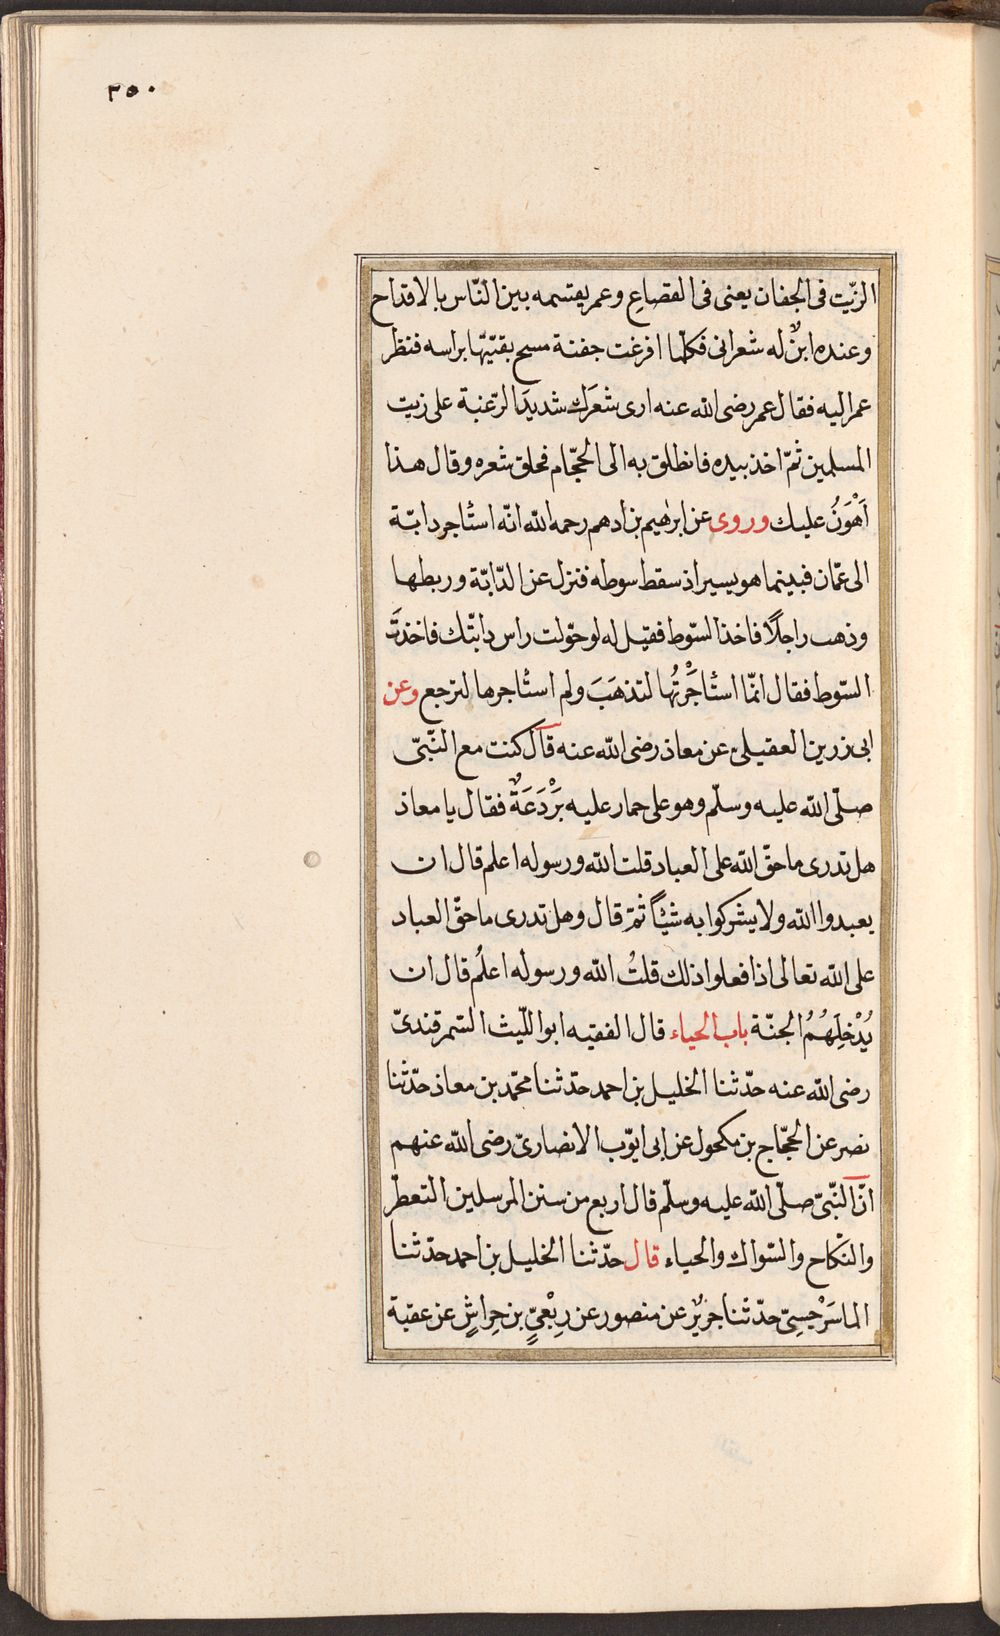 ٣٥٠
الزّيت فى الجفان يعنى فى القصاع وعمر يقتسمه بين النّاس بالاقداح
وعنده ابنٌ له شعرانى فكلّما افرغت جفنة مسح بقيّتها براسه فنظر
عمر اليه فقال عمر رضى الله عنه ارى شعرَك شديدَ الرّغبة على زيت
المسلمين ثمّ اخذ بيده فانطلق به الى الحجّام فحلق شعره وقال هذا
اَهْوَنُ عليك وروى عن ابرهيم بن ادهم رحمه الله انّه استأجر دابّة
الى عمّان فبينما هو يسير اذ سقط سوطه فنزل عن الدّابّة وربطها
وذهب راجلًا فاخذ السّوط فقيل له لو حوّلت راس دابّتك فاخذتَ
السّوط فقال انّما استأجَرْتُها لتذهَبَ ولم استأجرها لترجع وعن
ابى زرين العقيلى عن معاذ رضى الله عنه قال كنت مع النّبىّ
صلّى الله عليه وسلّم وهو على حمار عليه بَرْدَعَةٌ فقال يا معاذ
هل تدرى ما حقّ الله على العباد قلت الله ورسوله اعلم قال ان
يعبدوا الله ولا يشركوا به شيئًا ثمّ قال وهل تدرى ما حقّ العباد
على الله تعالى اذا فعلوا ذلك قلتُ الله ورسوله اعلمُ قال ان
يُدْخِلَهُمُ الجنّة باب الحياء قال الفقيه ابو اللّيث السّمرقندىّ
رضى الله عنه حدّثنا الخليل بن احمد حدّثنا محمّد بن معاذ حدّثنا
نصر عن الحجّاج بن مكحول عن ابى ايّوب الانصارىّ رضى الله عنهم
انّ النّبىّ صلّى الله عليه وسلّم قال اربع من سنن المرسلين التعطّر
والنّكاح والسّواك والحياء قال حدّثنا الخليل بن احمد حدّثنا
الماسَرْجسِىّ حدّثنا جريرٌ عن منصور عن رِبْعىٍّ بن حِراشٍ عن عقبة